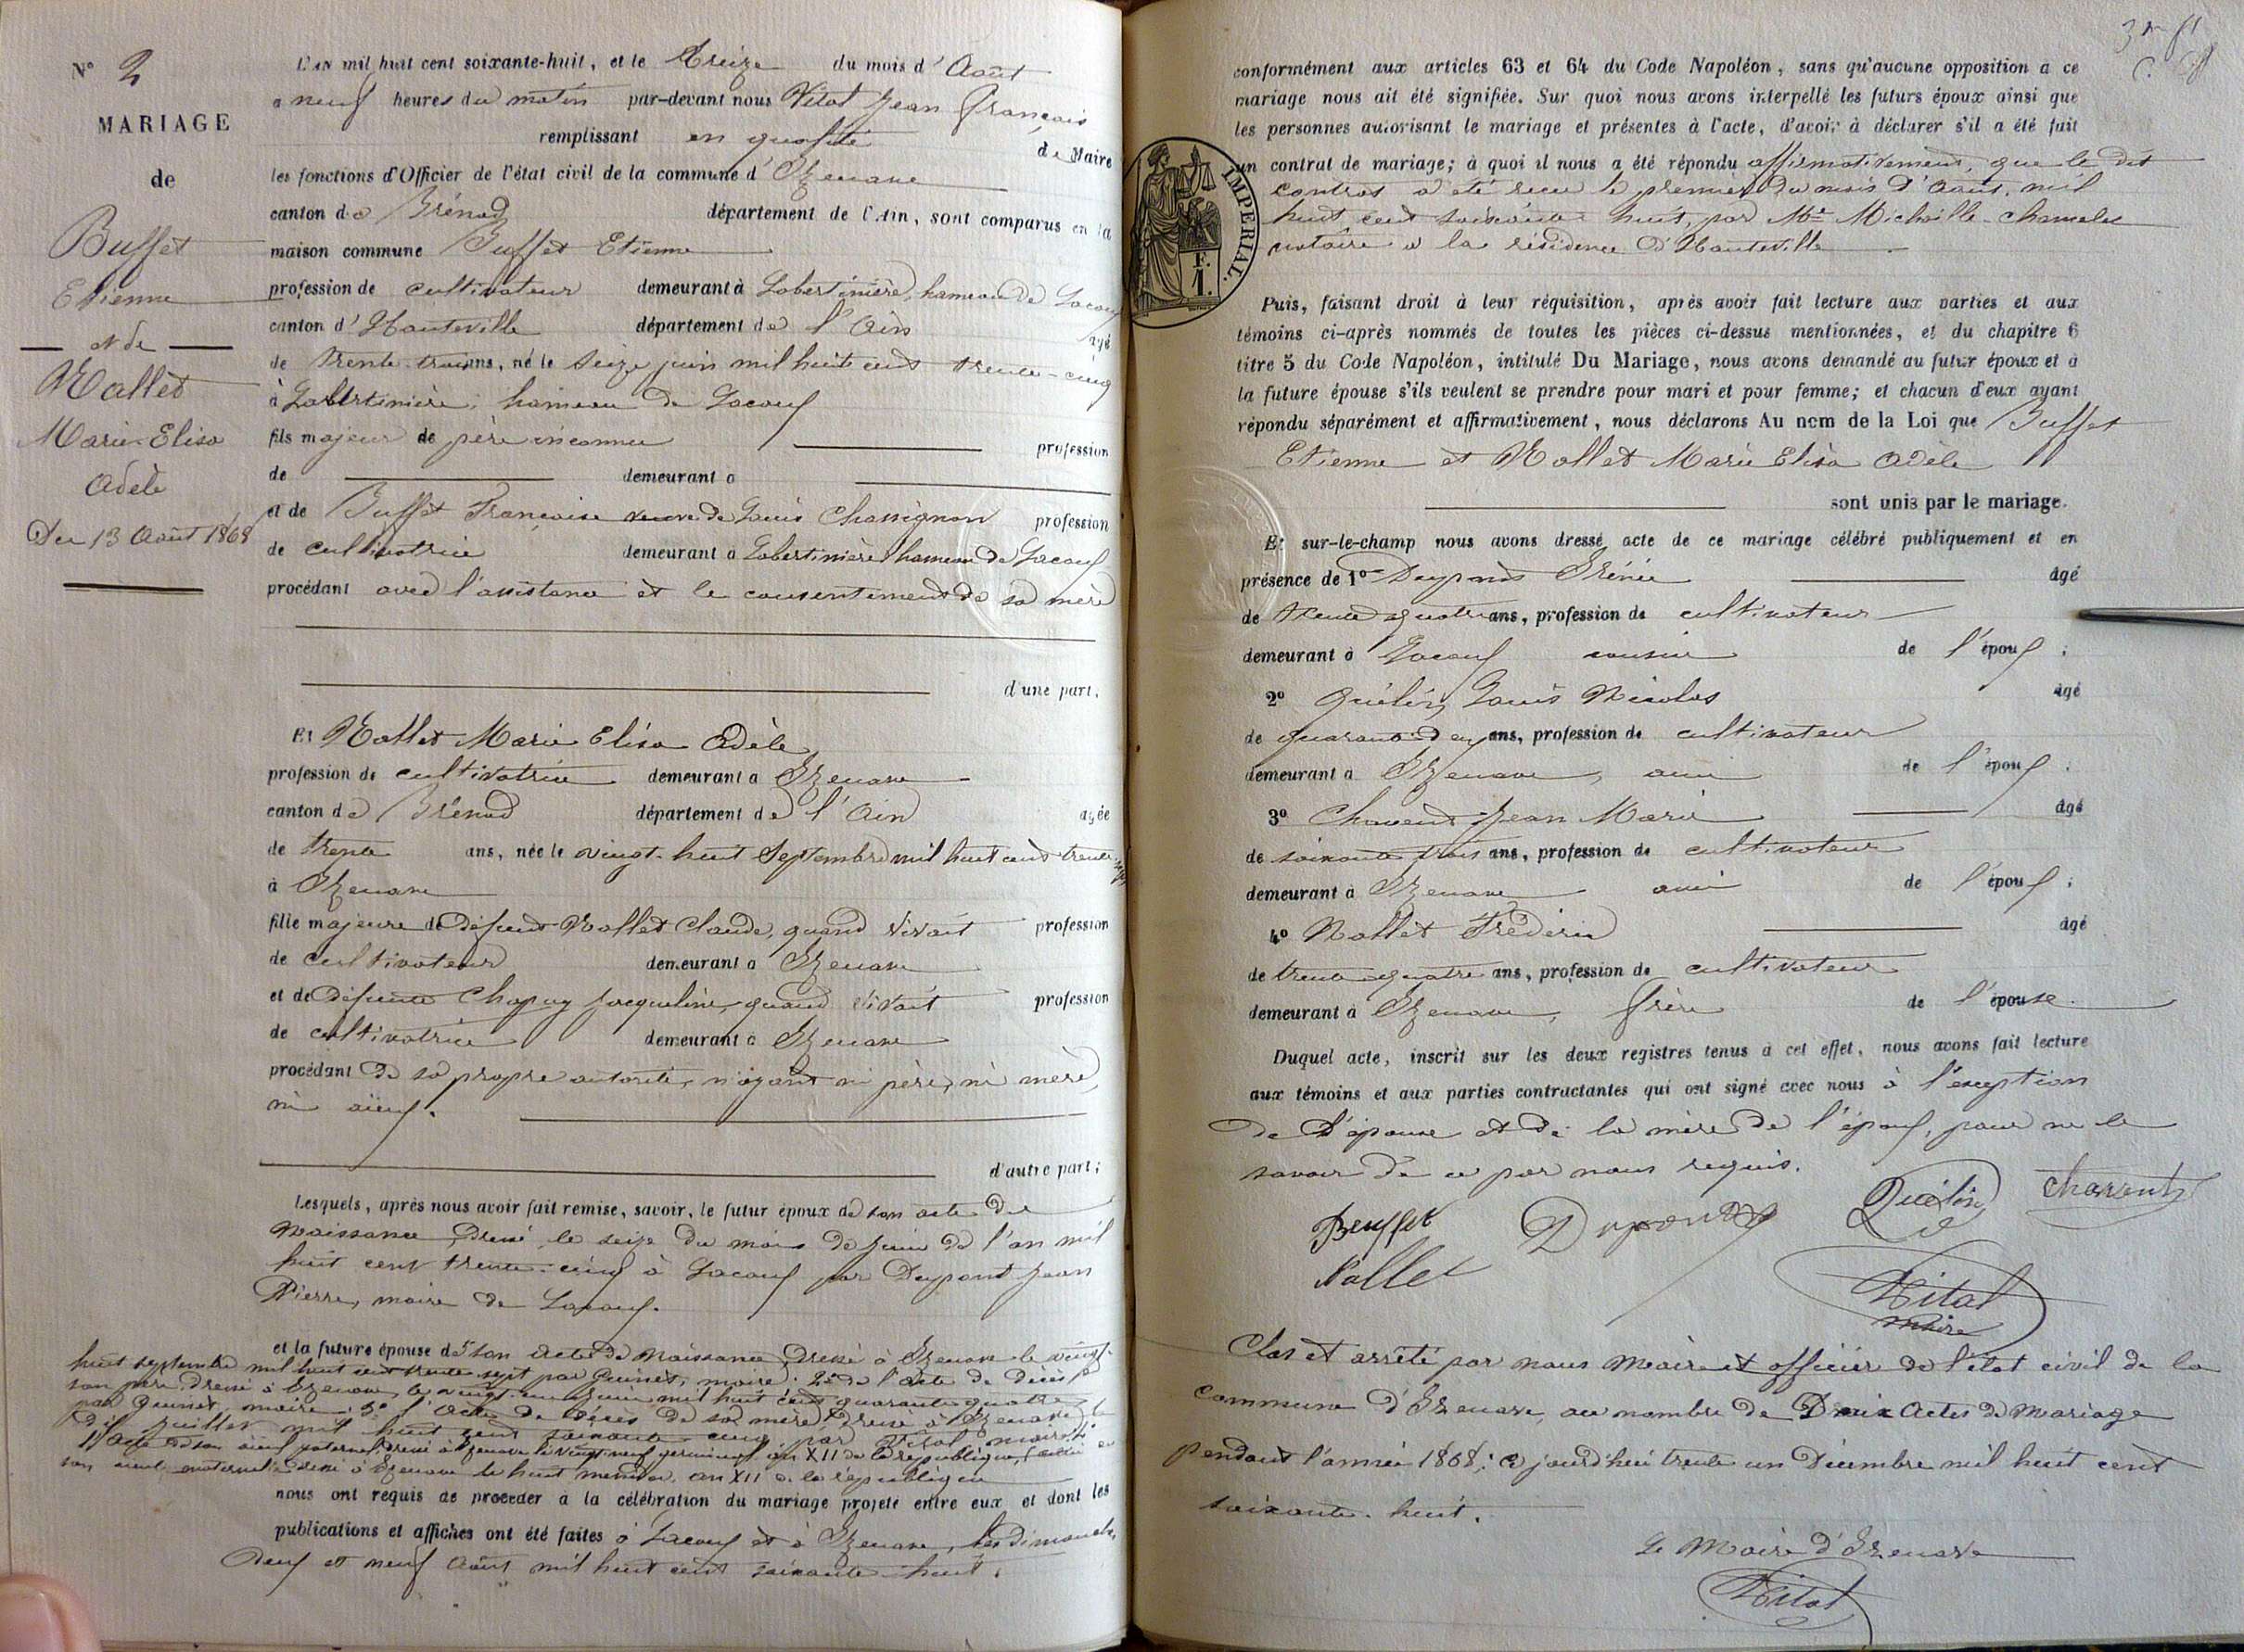 N° 2
MARIAGE
de
Buffet
Etienne
et de
Nallet
Marie Elisa
Adèle
Du 13 Août 1868
L'AN mil huit cent soixante-huit, et le treize du mois d'Août
a neuf heures du matin par-devant nous Vital Jean François
remplissant en qualité de Maire
les fonctions d'Officier de l'état civil de la commune d'Izenave
canton de Brénod département de l'Ain, sont comparus en la
maison commune Buffet Etienne
profession de cultivateur demeurant à Lobertinière, hameau de Lacoux
canton d'Hauteville département de l'Ain âgé
de trente-trois ans, né le seize juin mil huit cent trente-cinq
à Lobertinière, hameau de Lacoux
fils majeur de père inconnu profession
de demeurant à
et de Buffet Françoise veuve de Louis Chassignon profession
de cultivatrice demeurant à Lobertinière hameau de Lacoux
procédant avec l'assistance et le consentement de sa mère
d'une part,
Et Nallet Marie Elisa Adèle
profession de cultivatrice demeurant à Izenave
canton de Brénod département de l'Ain âgée
de trente ans, née le vingt-huit Septembre mil huit cent trente-sept
à Izenave
fille majeure de défunt Nallet Claude, quand vivait profession
de cultivateur demeurant à Izenave
et de défunte Chapuy Jacqueline, quand vivait profession
de cultivatrice demeurant à Izenave
procédant de sa propre autorité, n'ayant ni père, ni mère,
ni aïeux.
d'autre part;
Lesquels, après nous avoir fait remise, savoir, le futur époux de son acte de
naissance, dressé le seize du mois de juin de l'an mil
huit cent trente-cinq à Lacoux par Dupont Jean
Pierre, maire de Lacoux.
et la future épouse de 1° son acte de naissance, dressé à Izenave le vingt-
huit septembre mil huit cent trente sept par Guinet, maire; 2° de l'acte de décès de
son père dressé à Izenave, le vingt-un Juin mil huit cent quarante quatre
par Guinet, maire, 3° l'acte de décès de sa mère dressé à Izenave, le
dix juillet mil huit cent soixante cinq par Vital, maire; 4°
l'acte de son aïeul paternel, dressé à Izenave le vingt-neuf germinal an XII de la république,
son aïeul maternel dressé à Izenave le huit messidor, an XII de la république
nous ont requis de procéder à la célébration du mariage projeté entre eux, et dont les
publications et affiches ont été faites à Lacoux et à Izenave, les dimanches
deux et neuf Août mil huit cent soixante-huit,
conformément aux articles 63 et 64 du Code Napoléon, sans qu'aucune opposition à ce
mariage nous ait été signifiée. Sur quoi nous avons interpellé les futurs époux ainsi que
les personnes autorisant le mariage et présentes à l'acte, d'avoir à déclarer s'il a été fait
un contrat de mariage; à quoi il nous a été répondu affirmativement, que le dit
contrat a été reçu le premier du mois d'Août, mil
huit cent soixante-huit, par Me Michaille-Chamelet
notaire à la résidence d'Hauteville
IMPERIAL.
F.
1.
Puis, faisant droit à leur réquisition, après avoir fait lecture aux parties et aux
témoins ci-après nommés de toutes les pièces ci-dessus mentionnées, et du chapitre 6
titre 5 du Code Napoléon, intitulé Du Mariage, nous avons demandé au futur époux et à
la future épouse s'ils veulent se prendre pour mari et pour femme; et chacun d'eux ayant
répondu séparément et affirmativement, nous déclarons Au nom de la Loi que Buffet
Etienne et Nallet Marie Elisa Adèle
sont unis par le mariage.
Et sur-le-champ nous avons dressé acte de ce mariage célébré publiquement et en
présence de 1° Dupont Irénée âgé
de trente quatre ans, profession de cultivateur
demeurant à Lacoux cousin de l'époux;
2° Quélin Louis Nicolas âgé
de quarante-deux ans, profession de cultivateur
demeurant à Izenave, ami de l'époux;
3° Chavent Jean Marie âgé
de soixante trois ans, profession de cultivateur
demeurant à Izenave ami de l'époux;
4° Nallet Frédéric âgé
de trente quatre ans, profession de cultivateur
demeurant à Izenave, frère de l'épouse.
Duquel acte, inscrit sur les deux registres tenus à cet effet, nous avons fait lecture
aux témoins et aux parties contractantes qui ont signé avec nous à l'exception
de l'épouse et de la mère de l'époux, pour ne le
savoir de ce par nous requis.
Buffet Dupont Quélin Chavent
Nallet Vital
maire
Clos et arrêté par nous maire et officier de l'état civil de la
commune d'Izenave, au nombre de Deux actes de mariage
pendant l'année 1868; ce jourd'hui trente un Décembre mil huit cent
soixante-huit.
Le Maire d'Izenave
Vital